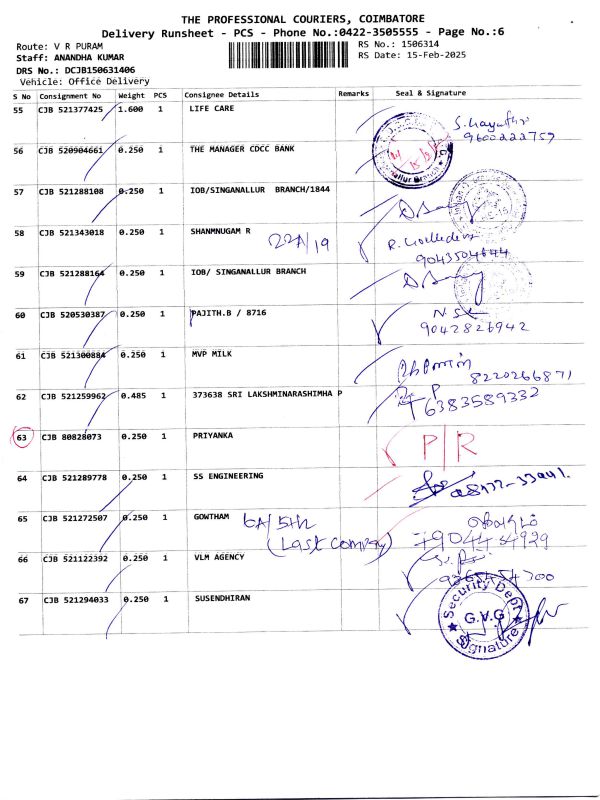 THE PROFESSIONAL COURIERS, COIMBATORE
Delivery Runsheet - PCS - Phone No.:0422-3505555 - Page No.:6
Route: V R PURAM
RS No.: 1506314
Staff: ANANDHA KUMAR
RS Date: 15-Feb-2025
DRS No.: DCJB150631406
Vehicle: Office Delivery
S No Consignment No Weight PCS Consignee Details Remarks Seal & Signature
55 CJB 521377425 1.600 1 LIFE CARE
9600222757
56 CJB 520904661 0.250 1 THE MANAGER CDCC BANK
57 CJB 521288108 0.250 1 IOB/SINGANALLUR BRANCH/1844
58 CJB 521343018 0.250 1 SHANMNUGAM R 22A/19
9043504644
59 CJB 521288164 0.250 1 IOB/ SINGANALLUR BRANCH
60 CJB 520530387 0.250 1 PAJITH.B / 8716
9042826942
61 CJB 521300884 0.250 1 MVP MILK
8220266871
62 CJB 521259962 0.485 1 373638 SRI LAKSHMINARASHIMHA P
6383589332
63 CJB 80828073 0.250 1 PRIYANKA P/R
64 CJB 521289778 0.250 1 SS ENGINEERING
65 CJB 521272507 0.250 1 GOWTHAM 6A/5th
(Last company)
66 CJB 521122392 0.250 1 VLM AGENCY
67 CJB 521294033 0.250 1 SUSENDHIRAN
Security Dept
G.V.G
Signature